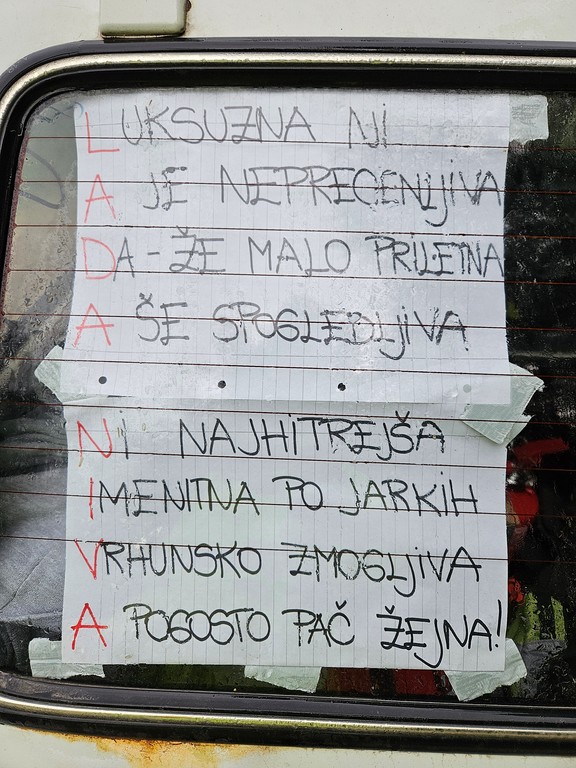 LUKSUZNA NI
A JE NEPRECENLJIVA
DA-ŽE MALO PRILETNA
A ŠE SPOGLEDLJIVA
NI NAJHITREJŠA
IMENITNA PO JARKIH
VRHUNSKO ZMOGLJIVA
A POGOSTO PAČ ŽEJNA!